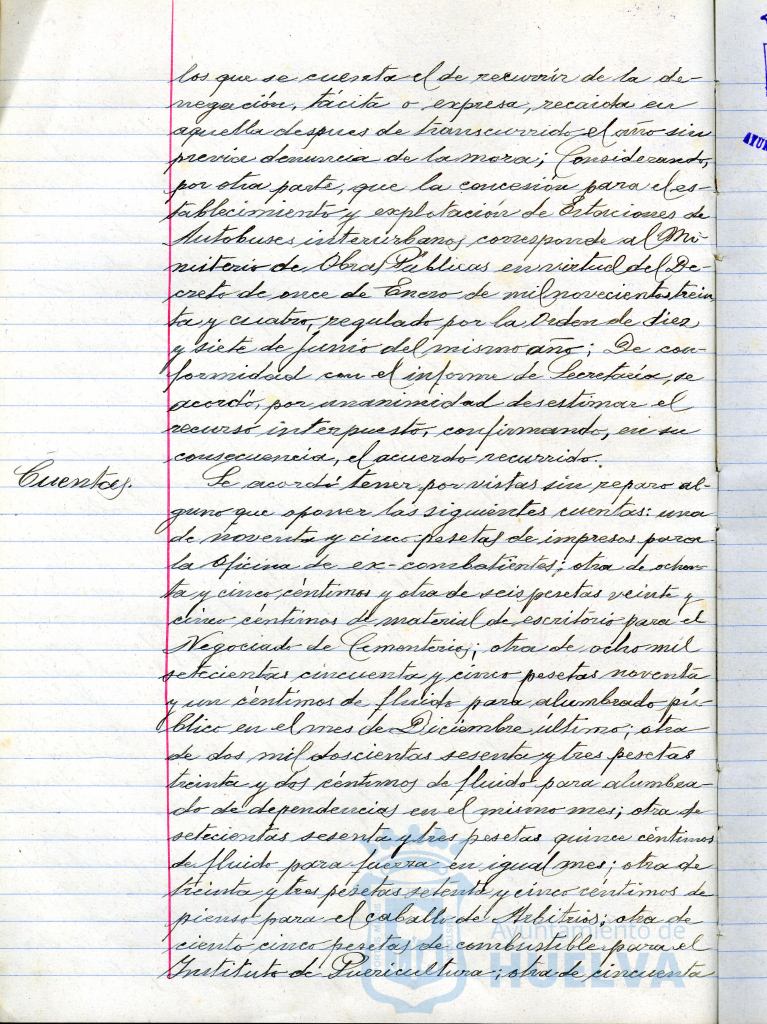 los que se cuenta el de recurrir de la de-
negación, tácita o expresa, recaida en
aquella despues de transcurrido el año sin
previa denuncia de la mora; Considerando,
por otra parte, que la concesión para el es-
tablecimiento y explotación de Estaciones de
Autobuses interurbanos corresponde al Mi-
nisterio de Obras Públicas en virtud del De-
creto de once de Enero de mil novecientos trein
ta y cuatro, regulado por la Orden de diez
y siete de Junio del mismo año; De con-
formidad con el informe de Secretaría, se
acordó, por unanimidad desestimar el
recurso interpuesto, confirmando, en su
consecuencia, el acuerdo recurrido.
Cuentas.
Se acordó tener por vistas sin reparo al-
guno que oponer las siguientes cuentas: una
de noventa y cinco pesetas de impresos para
la Oficina de ex-combatientes; otra de ochen-
ta y cinco céntimos y otra de seis pesetas veinte y
cinco céntimos de material de escritorio para el
Negociado de Cementerio; otra de ocho mil
setecientas cincuenta y cinco pesetas noventa
y un céntimos de fluido para alumbrado pú-
blico en el mes de Diciembre último; otra
de dos mil doscientas sesenta y tres pesetas
treinta y dos céntimos de fluido para alumbra-
do de dependencias en el mismo mes; otra de
setecientas sesenta y tres pesetas quince céntimos
de fluido para fuerza en igual mes; otra de
treinta y tres pesetas setenta y cinco céntimos de
pienso para el caballo de Arbitrios; otra de
ciento cinco pesetas de combustible para el
Instituto de Puericultura; otra de cincuenta
Ayuntamiento de
HUELVA